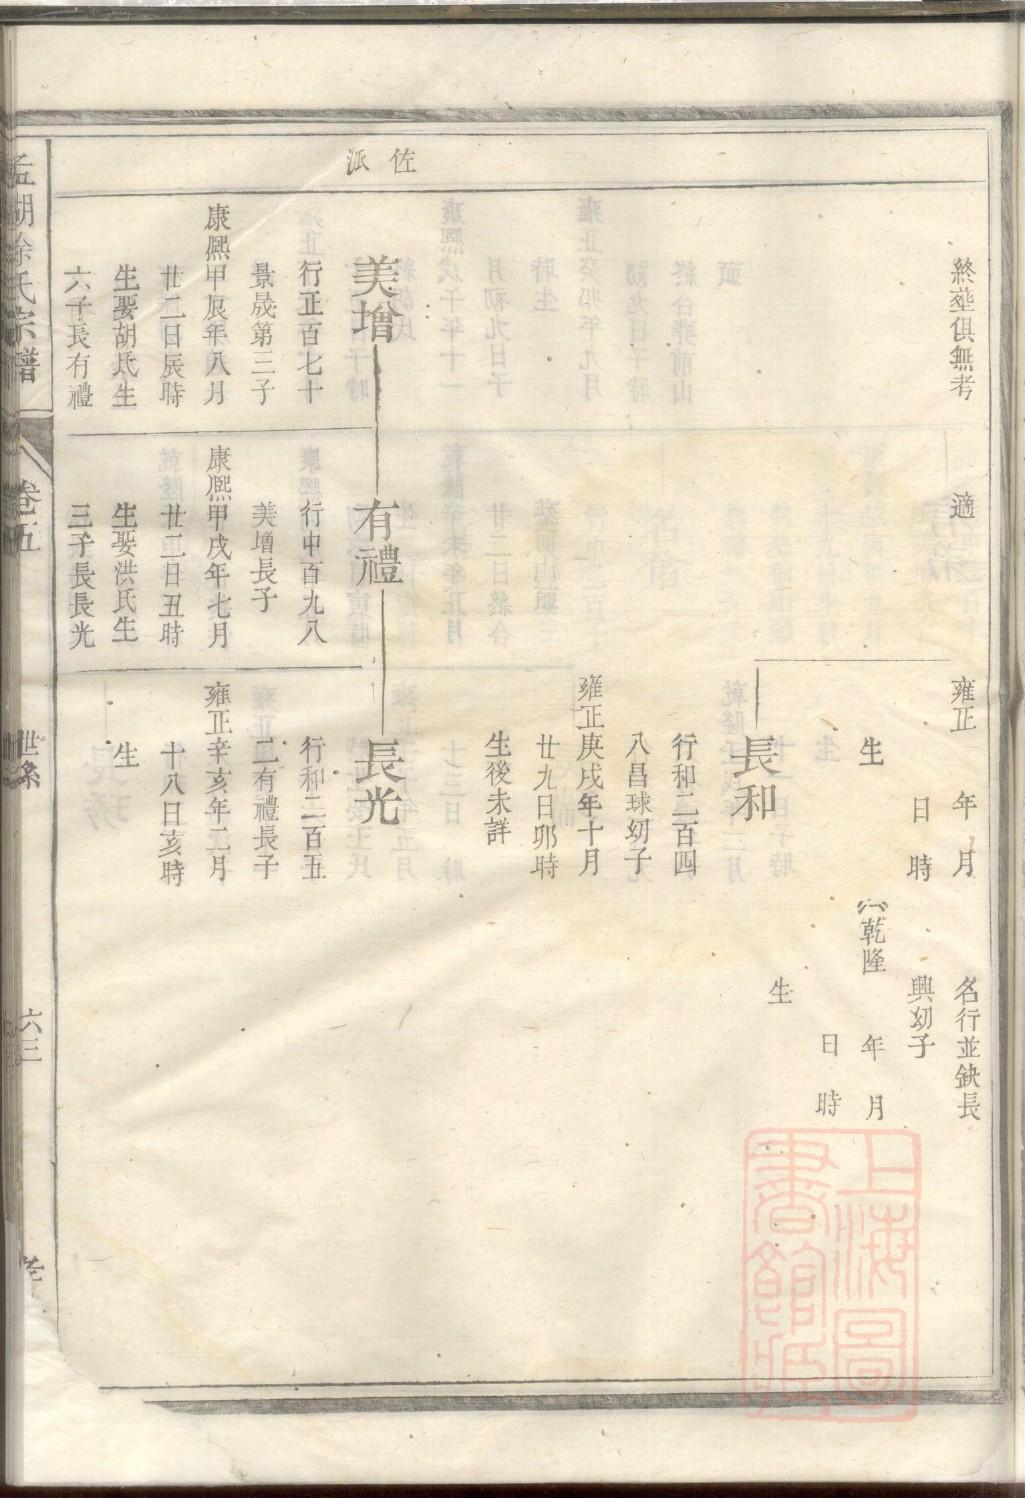 佐派
終塟俱無考
適
雍正　年　月
日　時
生
名行並缺長
興幼子
乾隆　年　月
日　時
生
長和
行和二百四
八昌球幼子
雍正庚戌年十月
廿九日卯時
生後未詳
美增
行正百七十
景晟第三子
康熈甲辰年八月
廿二日辰時
生娶胡氏生
六子長有禮
有禮
行中百九八
美增長子
康熈甲戌年七月
廿二日丑時
生娶洪氏生
三子長長光
長光
行和二百五
二有禮長子
雍正辛亥年二月
十八日亥時
生
孟湖徐氏宗譜
卷五
世系
六三
上海圖書館藏